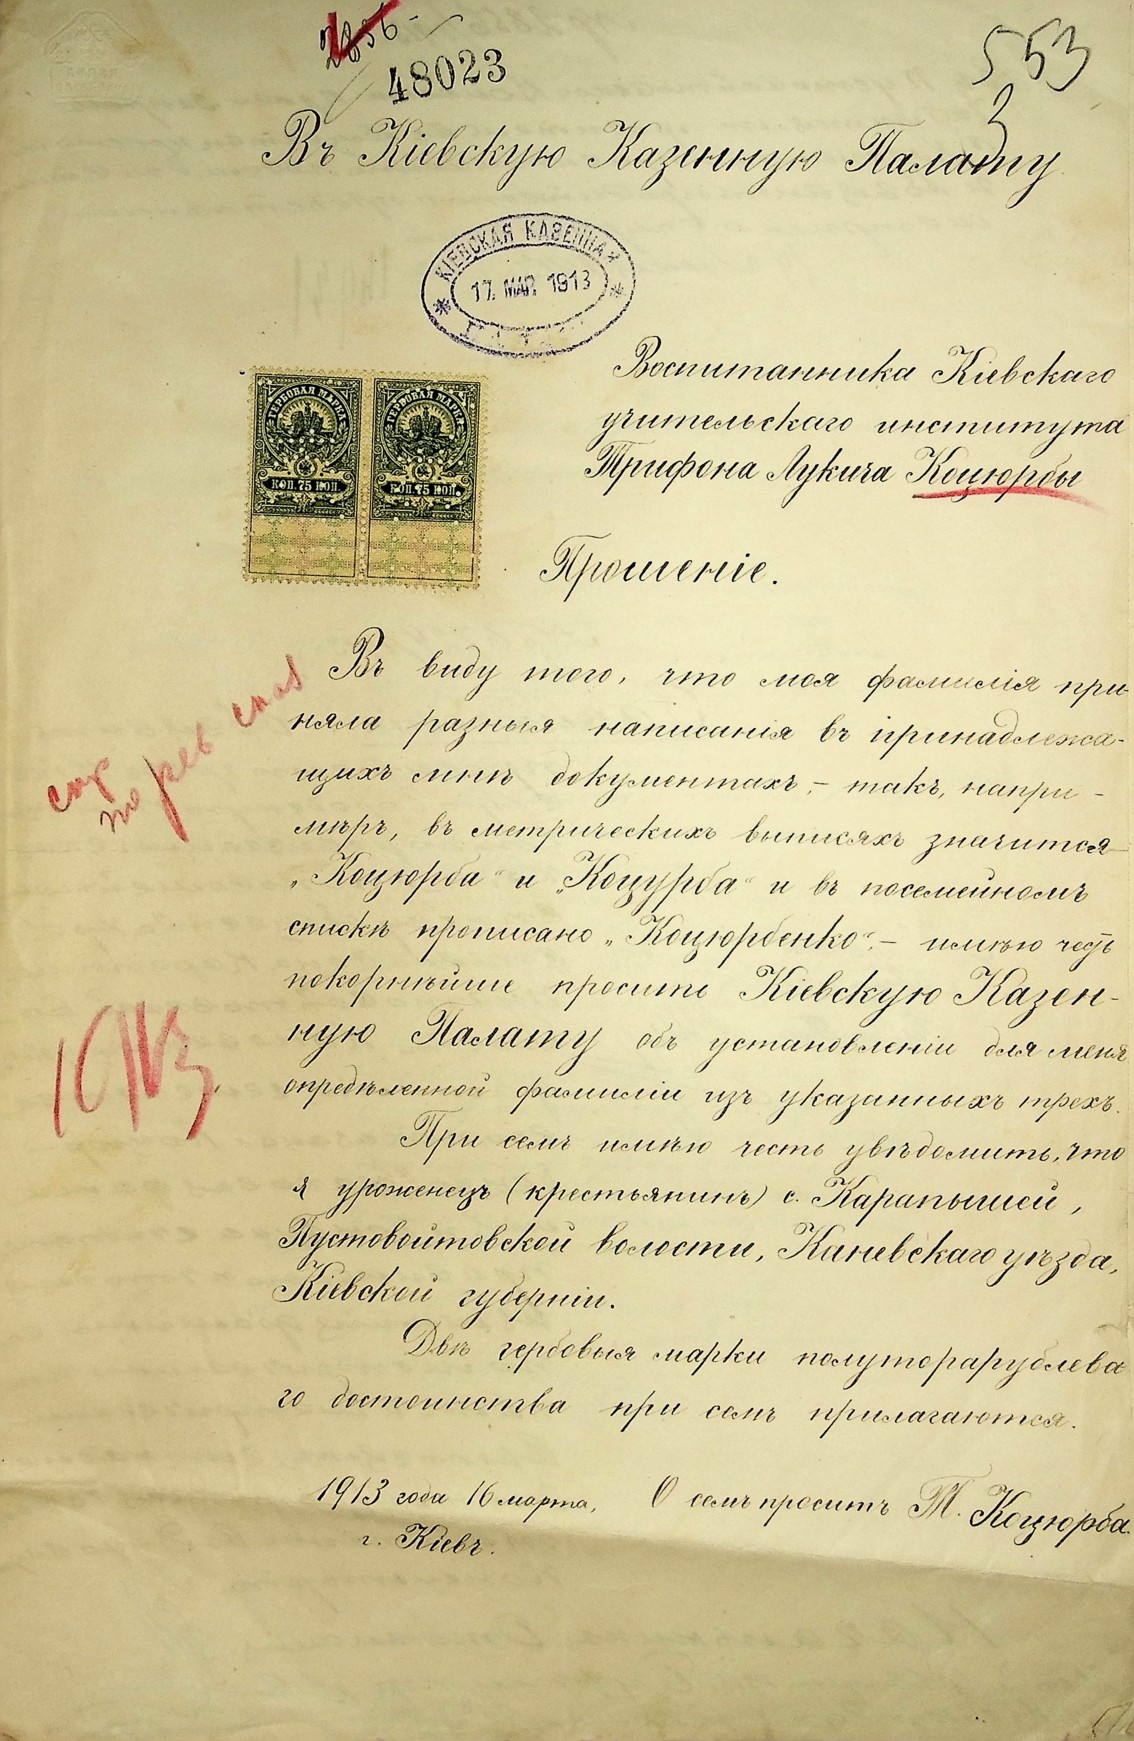 48023
553
3
Въ Кіевскую Казенную Палату
КІЕВСКАЯ КАЗЕННАЯ
17. МАР. 1913
Воспитанника Кіевскаго
учительскаго института
Трифона Лукича Коцюрбы
ГЕРБОВАЯ МАРКА ГЕРБОВАЯ МАРКА
КОП. 75 КОП. КОП. 75 КОП.
Прошеніе.
Въ виду того, что моя фамилія при-
няла разныя написанія въ принадлежа-
щихъ мнѣ документахъ, – такъ, напри-
мѣръ, въ метрическихъ выписяхъ значится
„Коцюрба“ и „Коцурба“ и въ посемейномъ
спискѣ прописано „Коцюрбенко“, – имѣю честь
покорнѣйше просить Кіевскую Казен-
ную Палату объ установленіи для меня
опредѣленной фамиліи изъ указанныхъ трехъ.
При семъ имѣю честь увѣдомить, что
я уроженецъ (крестьянинъ) с. Карапышей,
Пустовойтовской волости, Каневскаго уѣзда,
Кіевской губерніи.
Двѣ гербовыя марки полуторарублева
го достоинства при семъ прилагаются.
1913 года 16 марта, О семъ проситъ Т. Коцюрба.
г. Кіевъ.
по рев